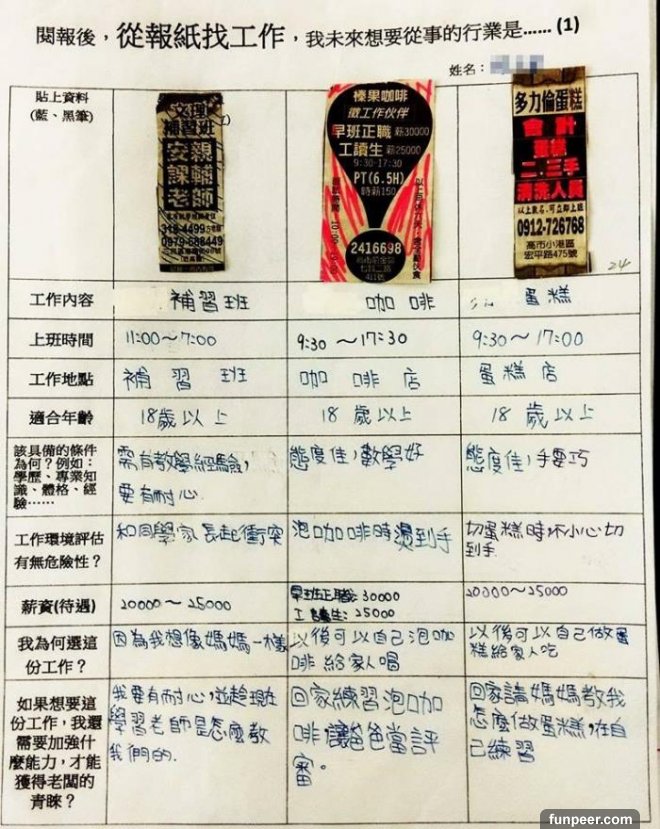 閱報後，從報紙找工作，我未來想要從事的行業是…… (1)
姓名：
貼上資料
(藍、黑筆)
文理
補習班
安親
課輔
老師
榛果咖啡
徵工作伙伴
早班正職 薪30000
工讀生 薪25000
9:30-17:30
PT(6.5H)
時薪150
2416698
多力倫蛋糕
會計
二、三手
清洗人員
以上意者,可立即上班
0912-726768
高市小港區
宏平路475號
24
工作內容
補習班
咖啡
蛋糕
上班時間
11:00～7:00
9:30～17:30
9:30～17:00
工作地點
補習班
咖啡店
蛋糕店
適合年齡
18歲以上
18歲以上
18歲以上
該具備的條件
為何？例如：
學歷、專業知
識、體格、經
驗……
需有教學經驗，
要有耐心.
態度佳，數學好
態度佳，手要巧
工作環境評估
有無危險性？
和同學家長起衝突
泡咖啡時燙到手
切蛋糕時不小心切
到手.
薪資(待遇)
20000～25000
早班正職:30000
工讀生:25000
20000～25000
我為何選這
份工作？
因為我想像媽媽一樣
以後可以自己泡咖
啡給家人喝
以後可以自己做蛋
糕給家人吃
如果想要這
份工作，我還
需要加強什
麼能力，才能
獲得老闆的
青睞？
我要有耐心，並趁現在
學習老師是怎麼教
我們的.
回家練習泡咖
啡讓爸爸當評
審。
回家請媽媽教我
怎麼做蛋糕，在自
己練習
funpeer.com